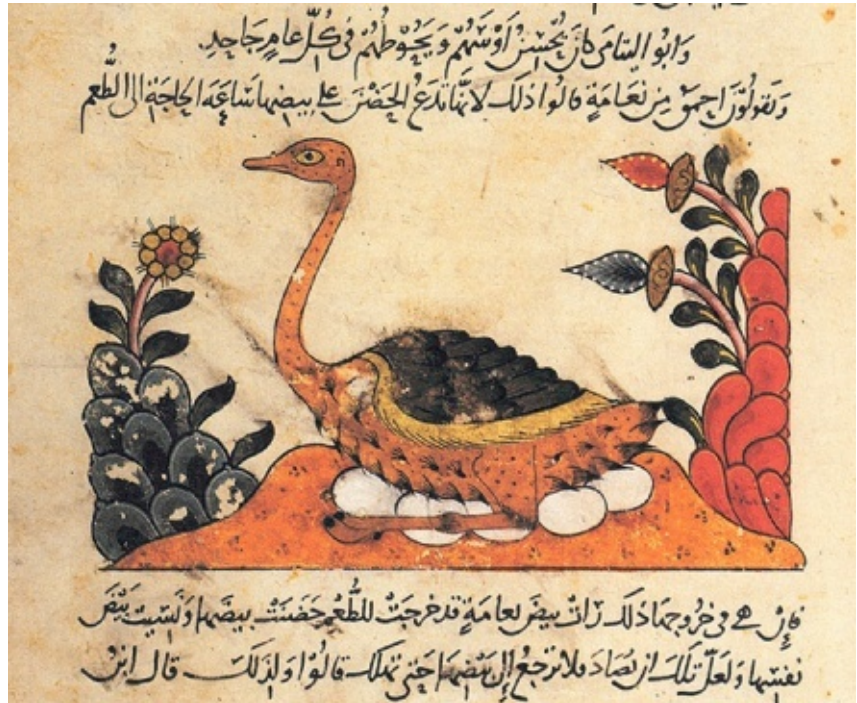 وابو اليتامى كان يحسن اوسهم ويحوطهم في كل عام جاحد
ويقولون احمق من نعامة قالوا ذلك لانها تدع الحضن على بيضها ساعة الحاجة الى الطعم
فان هي في خروجها ذلك رات بيض نعامة قد خرجت للطعم حضنت بيضها ونسيت بيض
نفسها ولعل تلك ان تصاد فلا ترجع الى بيضها حتى تهلك قالوا ولذلك قال ابن